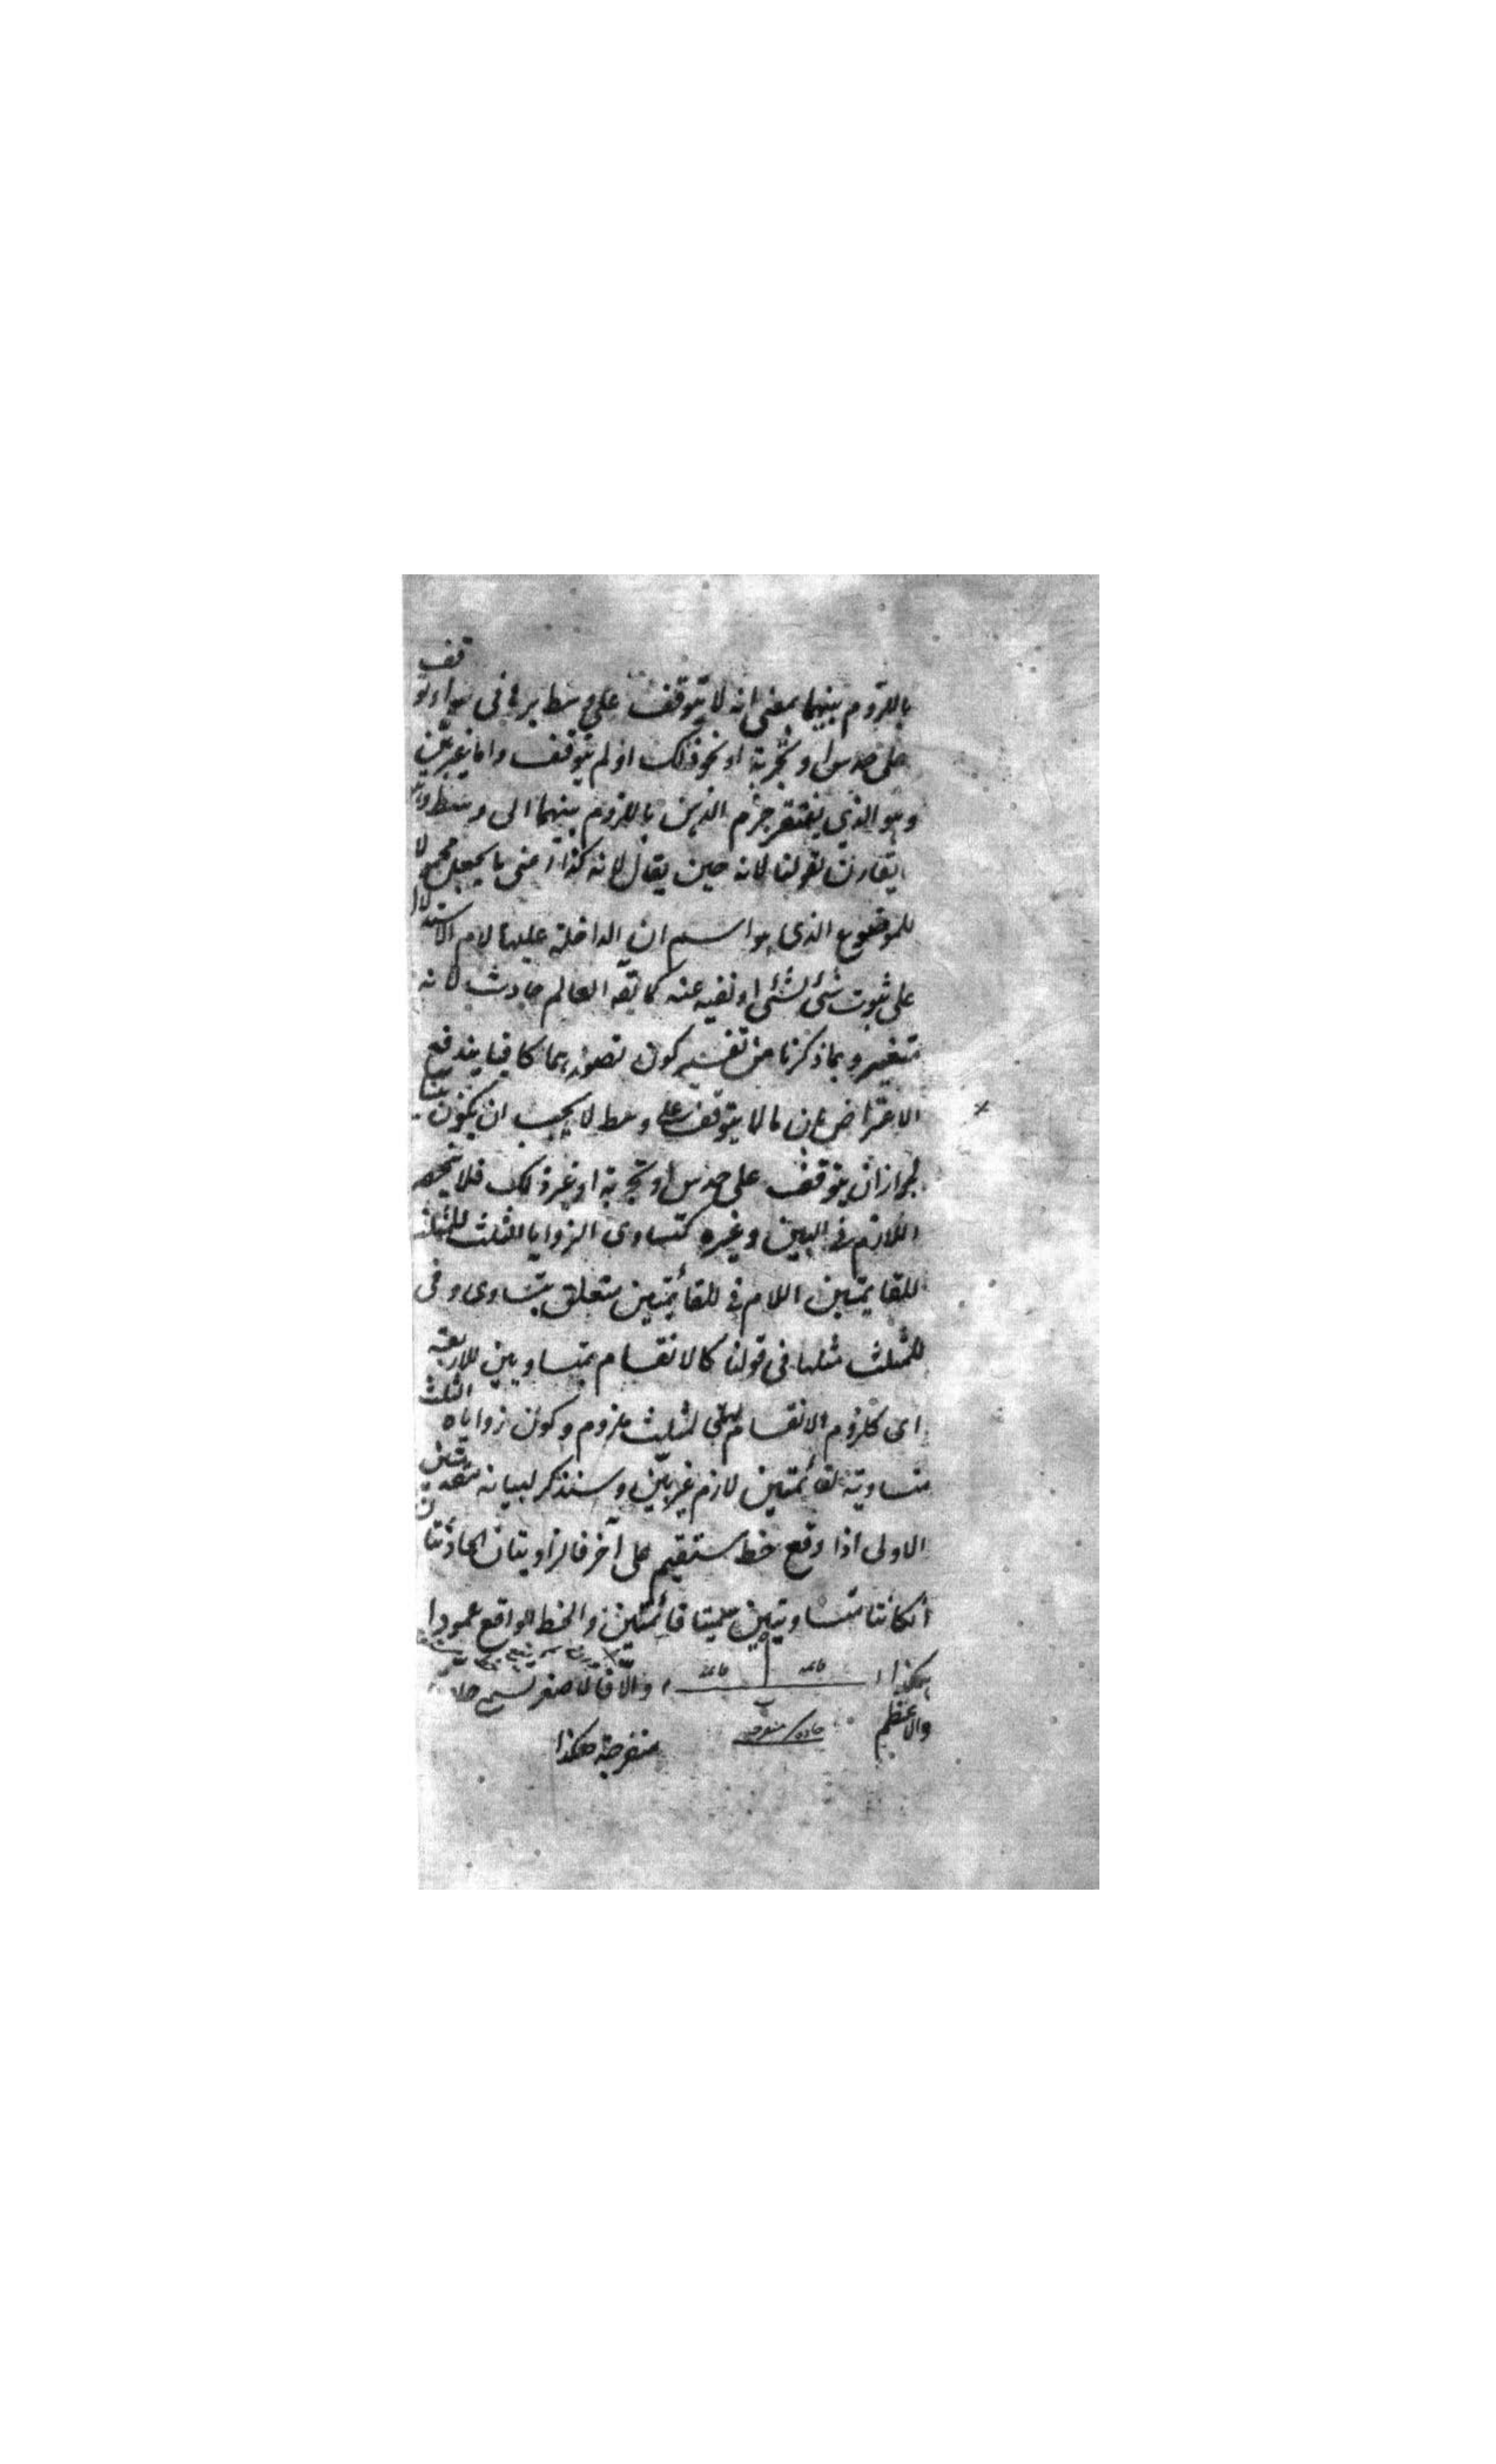 باللزوم بينهما بمعنى انه لا يتوقف على وسط برهانى سواء توقف
على حدس او تجربة او نحو ذلك او لم يتوقف واما غير بين
وهو الذي يفتقر جزم الذهن باللزوم بينهما الى وسط
يقارن لقولنا لانه حين يقال لانه كذا اعنى ما يجعل محمولا
للموضوع الذى هو اسم ان الداخلة عليها لام الاستدلال
على ثبوت شئ لشئ او نفيه عنه كما العالم حادث لانه
متغير وبما ذكرنا من تفسير كون تصورهما كافيا يندفع
الاعتراض بان ما لا يتوقف على وسط لا يجب ان يكون بينا
لجواز ان يتوقف على حدس او تجربة او غير ذلك فلا ينحصر
اللازم فى البين وغيره كتساوى الزوايا الثلث للمثلث
للقايمتين اللام فى للقائمتين متعلق بتساوى وفى
للمثلث مثلها فى قولنا كالانقسام بمتساويين للاربعة
اى كلزوم الانقسام المثلث ملزوم وكون زواياه الثلث
متساوية لقائمتين لازم غير بين وسنذكر لبيانه مقدمتين
الاولى اذا وقع خط مستقيم على آخر فالزاويتان الحادثتان
انكانتا متساويتين سميتا قائمتين والخط الواقع عمودا
هكذا ا قائمه قائمه والا فالاصغر تسمى حادة
والاعظم حاده منفرجه
منفرجة هكذا